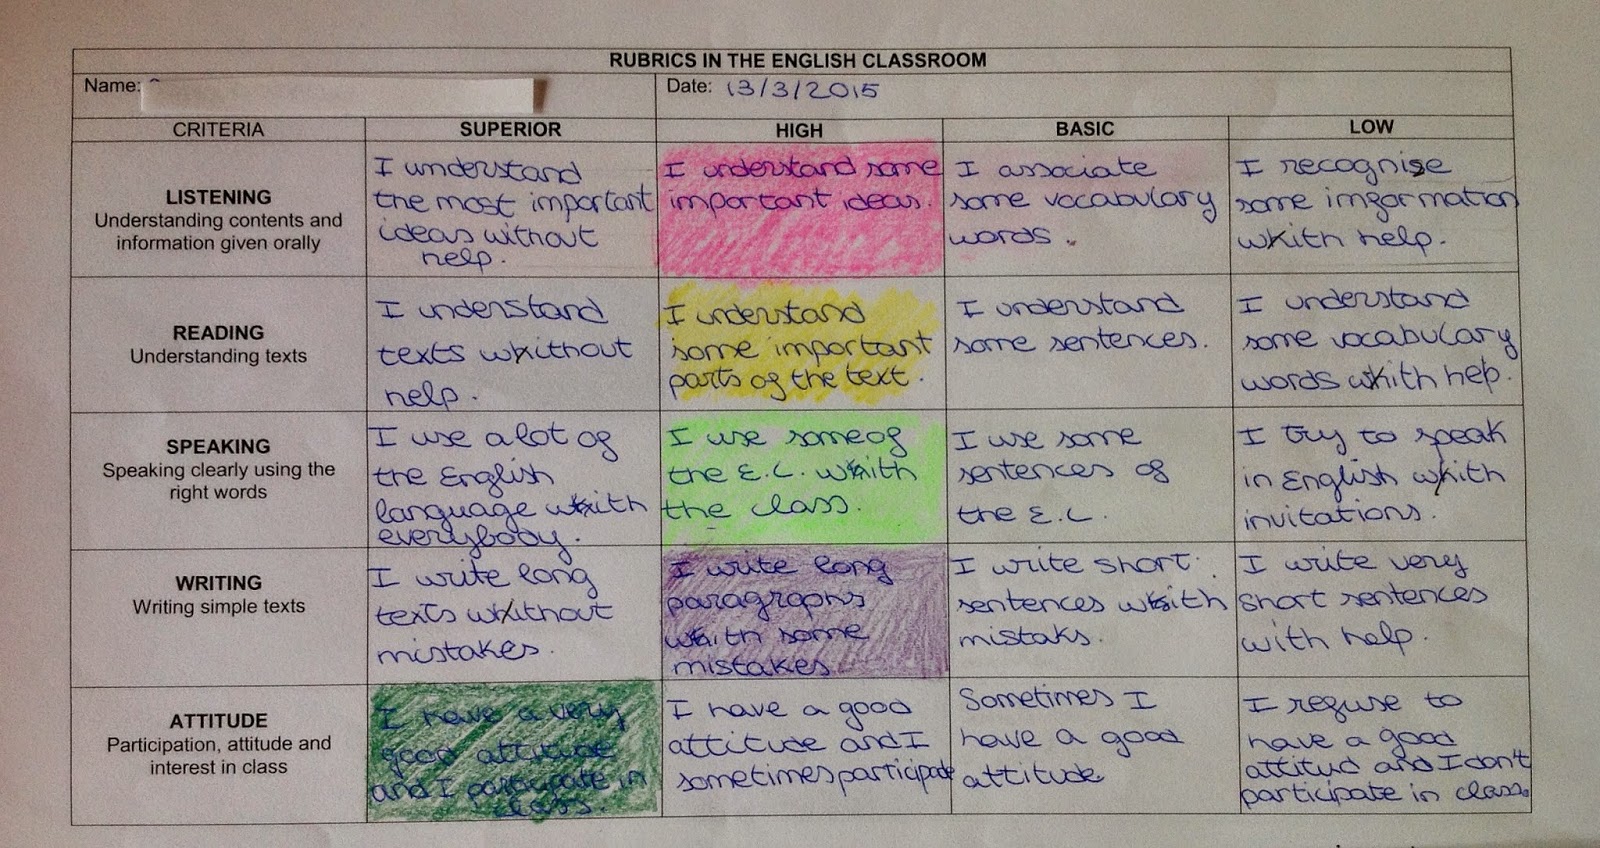 RUBRICS IN THE ENGLISH CLASSROOM
Name:
Date: 13/3/2015
CRITERIA
SUPERIOR
HIGH
BASIC
LOW
LISTENING
Understanding contents and
information given orally
I understand
the most important
ideas without
help.
I understand some
important ideas.
I associate
some vocabulary
words.
I recognise
some imformation
with help.
READING
Understanding texts
I understand
texts without
help.
I understand
some important
parts of the text.
I understand
some sentences.
I understand
some vocabulary
words with help.
SPEAKING
Speaking clearly using the
right words
I use a lot of
the English
language with
everybody.
I use some of
the E.L. with
the class.
I use some
sentences of
the E.L.
I try to speak
in English with
invitations.
WRITING
Writing simple texts
I write long
texts without
mistakes.
I write long
paragraphs
with some
mistakes
I write short
sentences with
mistaks.
I write very
short sentences
with help.
ATTITUDE
Participation, attitude and
interest in class
I have a very
good attitude
and I participate in
class.
I have a good
attitude and I
sometimes participate
Sometimes I
have a good
attitude
I refuse to
have a good
attitud and I don't
participate in class.